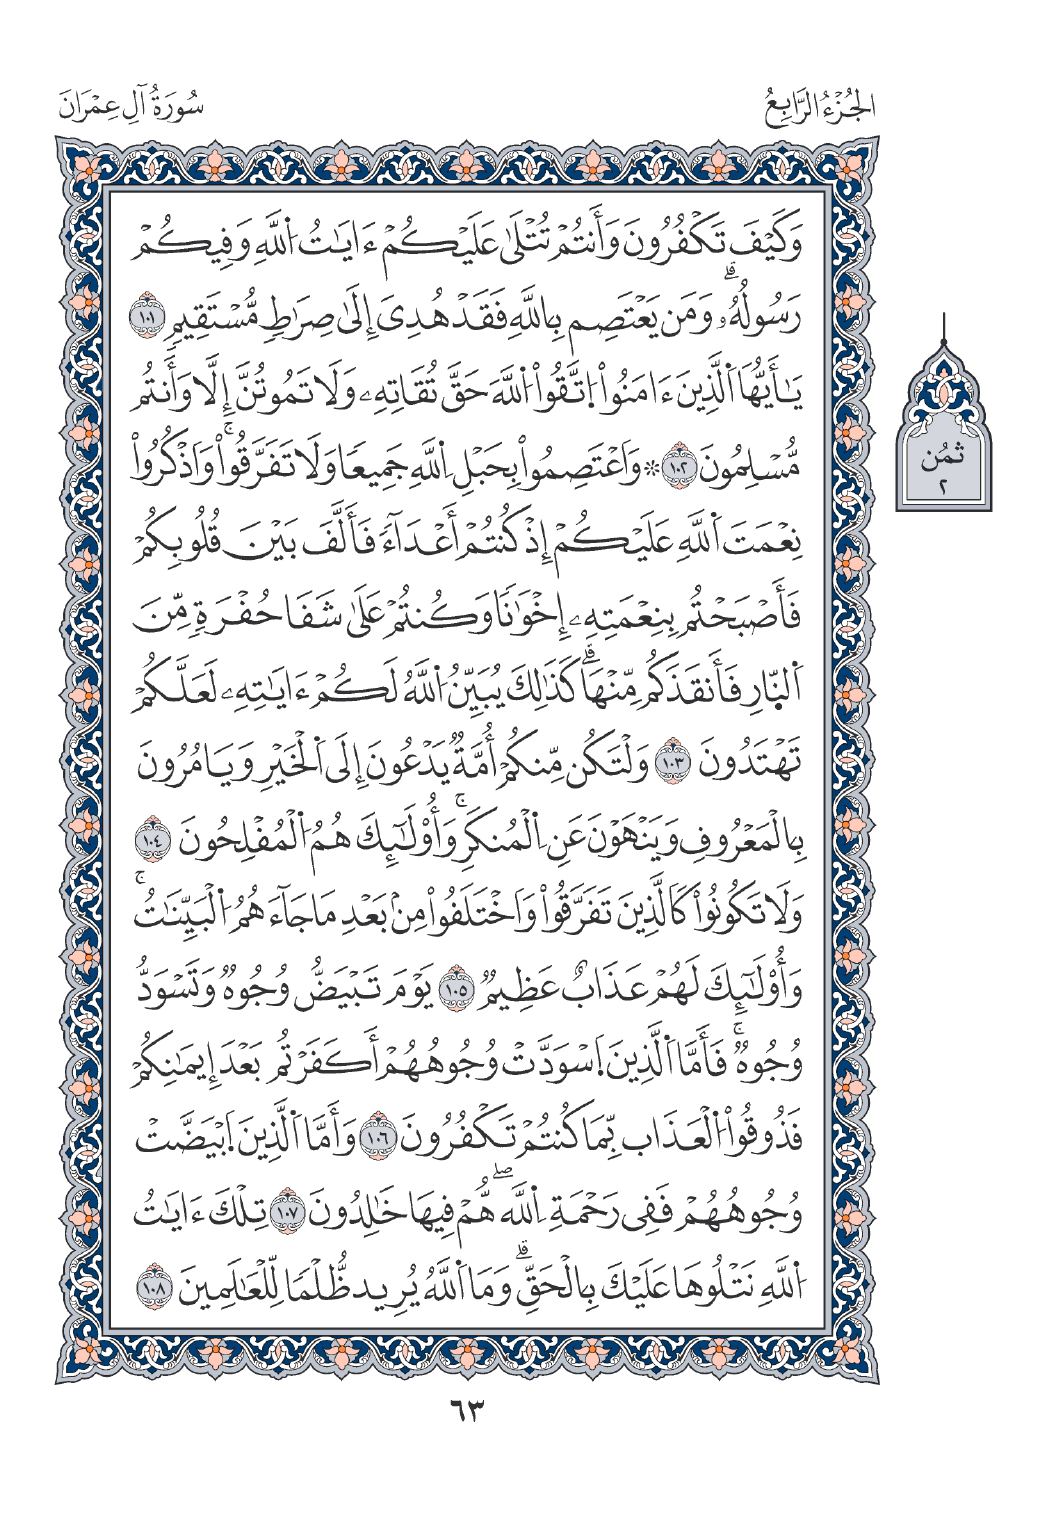 الجُزْءُ الرَّابِعُ
سُورَةُ آلِ عِمْرَانَ
وَكَيْفَ تَكْفُرُونَ وَأَنتُمْ تُتْلَىٰ عَلَيْكُمْ ءَايَٰتُ اُ۬للَّهِ وَفِيكُمْ
رَسُولُهُۥۗ وَمَن يَعْتَصِم بِاللَّهِ فَقَدْ هُدِىَ إِلَىٰ صِرَٰطٍ مُّسْتَقِيمٍ ١٠١
يَٰٓأَيُّهَا اَ۬لَّذِينَ ءَامَنُواْ اُ۪تَّقُواْ اُ۬للَّهَ حَقَّ تُقَاتِهِۦ وَلَا تَمُوتُنَّ إِلَّا وَأَنتُم
مُّسْلِمُونَ ١٠٢ ۞ وَاَعْتَصِمُواْ بِحَبْلِ اِ۬للَّهِ جَمِيعًا وَلَا تَفَرَّقُواْۚ وَاَذْكُرُواْ
نِعْمَتَ اَ۬للَّهِ عَلَيْكُمْ إِذْ كُنتُمْ أَعْدَآءً فَأَلَّفَ بَيْنَ قُلُوبِكُمْ
فَأَصْبَحْتُم بِنِعْمَتِهِۦ إِخْوَٰنًا وَكُنتُمْ عَلَىٰ شَفَا حُفْرَةٍ مِّنَ
اَ۬لنّ۪ارِ فَأَنقَذَكُم مِّنْهَاۗ كَذَٰلِكَ يُبَيِّنُ اُ۬للَّهُ لَكُمْ ءَايَٰتِهِۦ لَعَلَّكُمْ
تَهْتَدُونَ ١٠٣ وَلْتَكُن مِّنكُمْ أُمَّةٌ يَدْعُونَ إِلَى اَ۬لْخَيْرِ وَيَامُرُونَ
بِالْمَعْرُوفِ وَيَنْهَوْنَ عَنِ اِ۬لْمُنكَرِۚ وَأُوْلَٰٓئِكَ هُمُ اُ۬لْمُفْلِحُونَ ١٠٤
وَلَا تَكُونُواْ كَالَّذِينَ تَفَرَّقُواْ وَاَخْتَلَفُواْ مِنۢ بَعْدِ مَا جَآءَهُمُ اُ۬لْبَيِّنَٰتُۚ
وَأُوْلَٰٓئِكَ لَهُمْ عَذَابٌ عَظِيمٌ ١٠٥ يَوْمَ تَبْيَضُّ وُجُوهٌ وَتَسْوَدُّ
وُجُوهٌۚ فَأَمَّا اَ۬لَّذِينَ اَ۪سْوَدَّتْ وُجُوهُهُمْ أَكَفَرْتُم بَعْدَ إِيمَٰنِكُمْ
فَذُوقُواْ اُ۬لْعَذَاب بِّمَا كُنتُمْ تَكْفُرُونَ ١٠٦ وَأَمَّا اَ۬لَّذِينَ اَ۪بْيَضَّتْ
وُجُوهُهُمْ فَفِى رَحْمَةِ اِ۬للَّهۖ هُّمْ فِيهَا خَٰلِدُونَ ١٠٧ تِلْكَ ءَايَٰتُ
اُ۬للَّهِ نَتْلُوهَا عَلَيْكَ بِالْحَقِّۗ وَمَا اَ۬للَّهُ يُرِيد ظُّلْمًا لِّلْعَٰلَمِينَ ١٠٨
ثُمُن
٢
٦٣